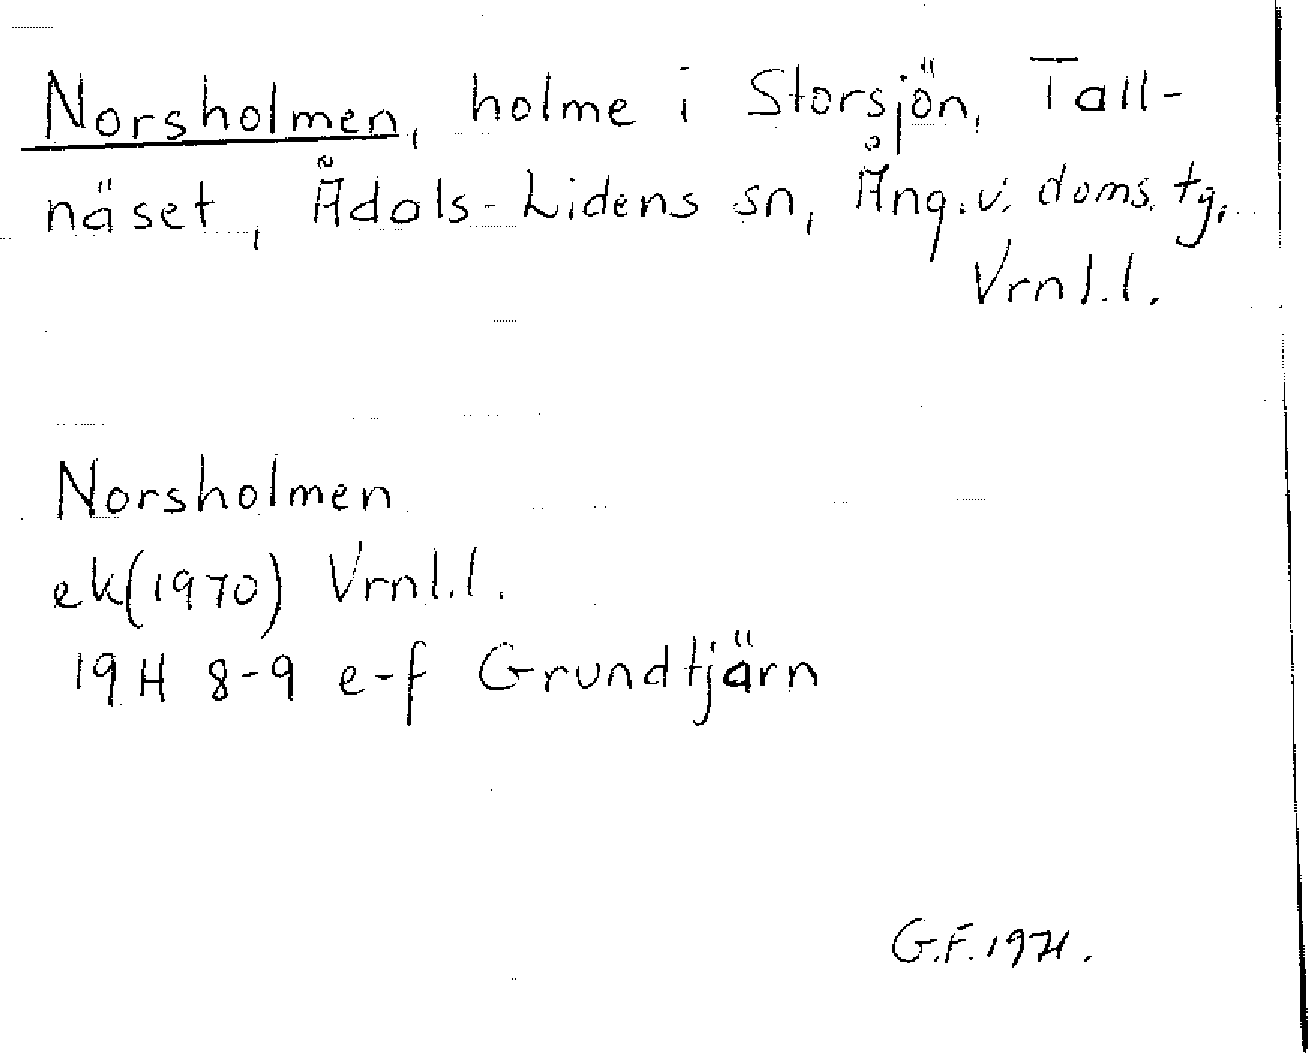 Norsholmen, holme i Storsjön, Tall-
näset, Ådals-Lidens sn, Ång. v. doms. tg.
Vrml.l.
Norsholmen
ek(1970) Vrml.l.
19H 8-9 e-f Grundtjärn
G.F. 1971.